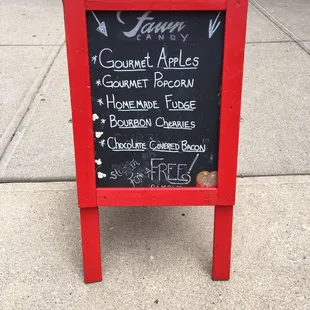 Fawn
CANDY
*Gourmet Apples
*Gourmet Popcorn
*Homemade Fudge
*Bourbon Cherries
*Chocolate Covered Bacon
FREE